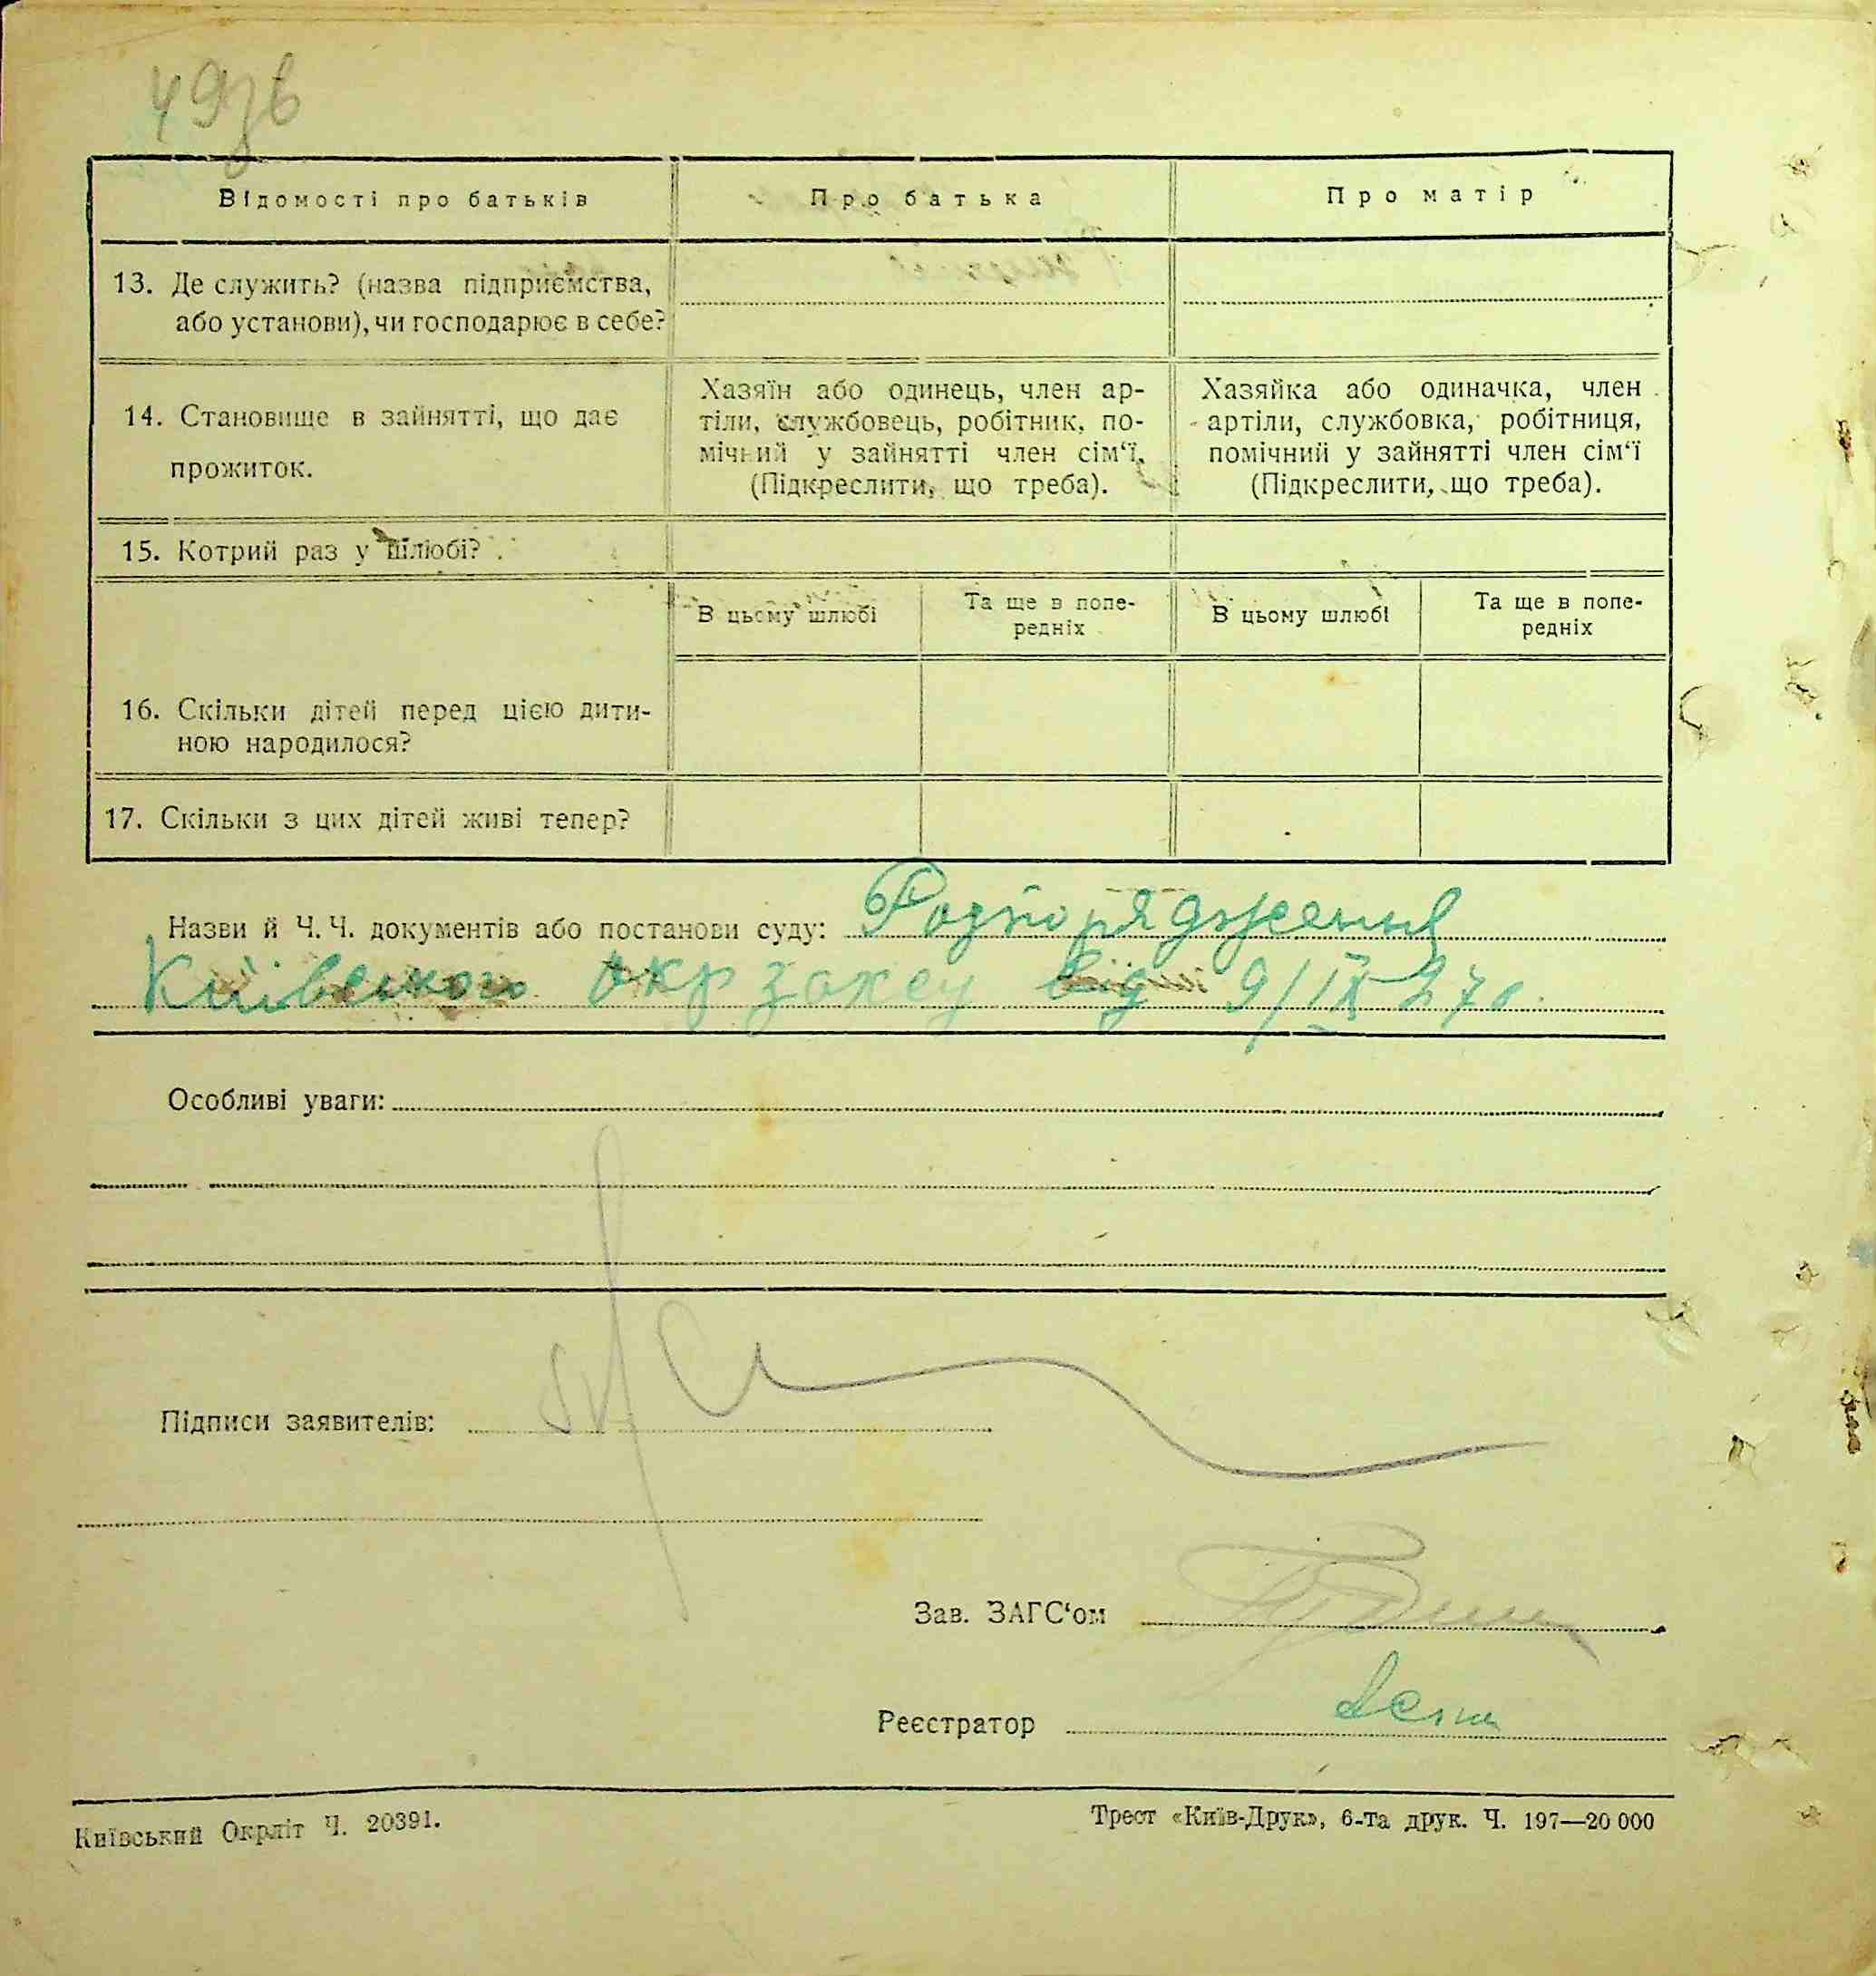 49зв
Відомості про батьків
Про батька
Про матір
13. Де служить? (назва підприємства,
або установи), чи господарює в себе?
14. Становище в зайнятті, що дає
прожиток.
Хазяїн або одинець, член ар-
тіли, службовець, робітник, по-
мічний у зайнятті член сім‘ї,
(Підкреслити, що треба).
Хазяйка або одиначка, член
артіли, службовка, робітниця,
помічний у зайнятті член сім‘ї
(Підкреслити, що треба).
15. Котрий раз у шлюбі?
В цьому шлюбі
Та ще в попе-
редніх
В цьому шлюбі
Та ще в попе-
редніх
16. Скільки дітей перед цією дити-
ною народилося?
17. Скільки з цих дітей живі тепер?
Назви й Ч. Ч. документів або постанови суду: Розпорядження
Київського Окрзагсу від 9/IX 27р.
Особливі уваги:
Підписи заявителів:
Зав. ЗАГС‘ом
Реєстратор
Київський Окрліт Ч. 20391.
Трест «Київ-Друк», 6-та друк. Ч. 197—20 000